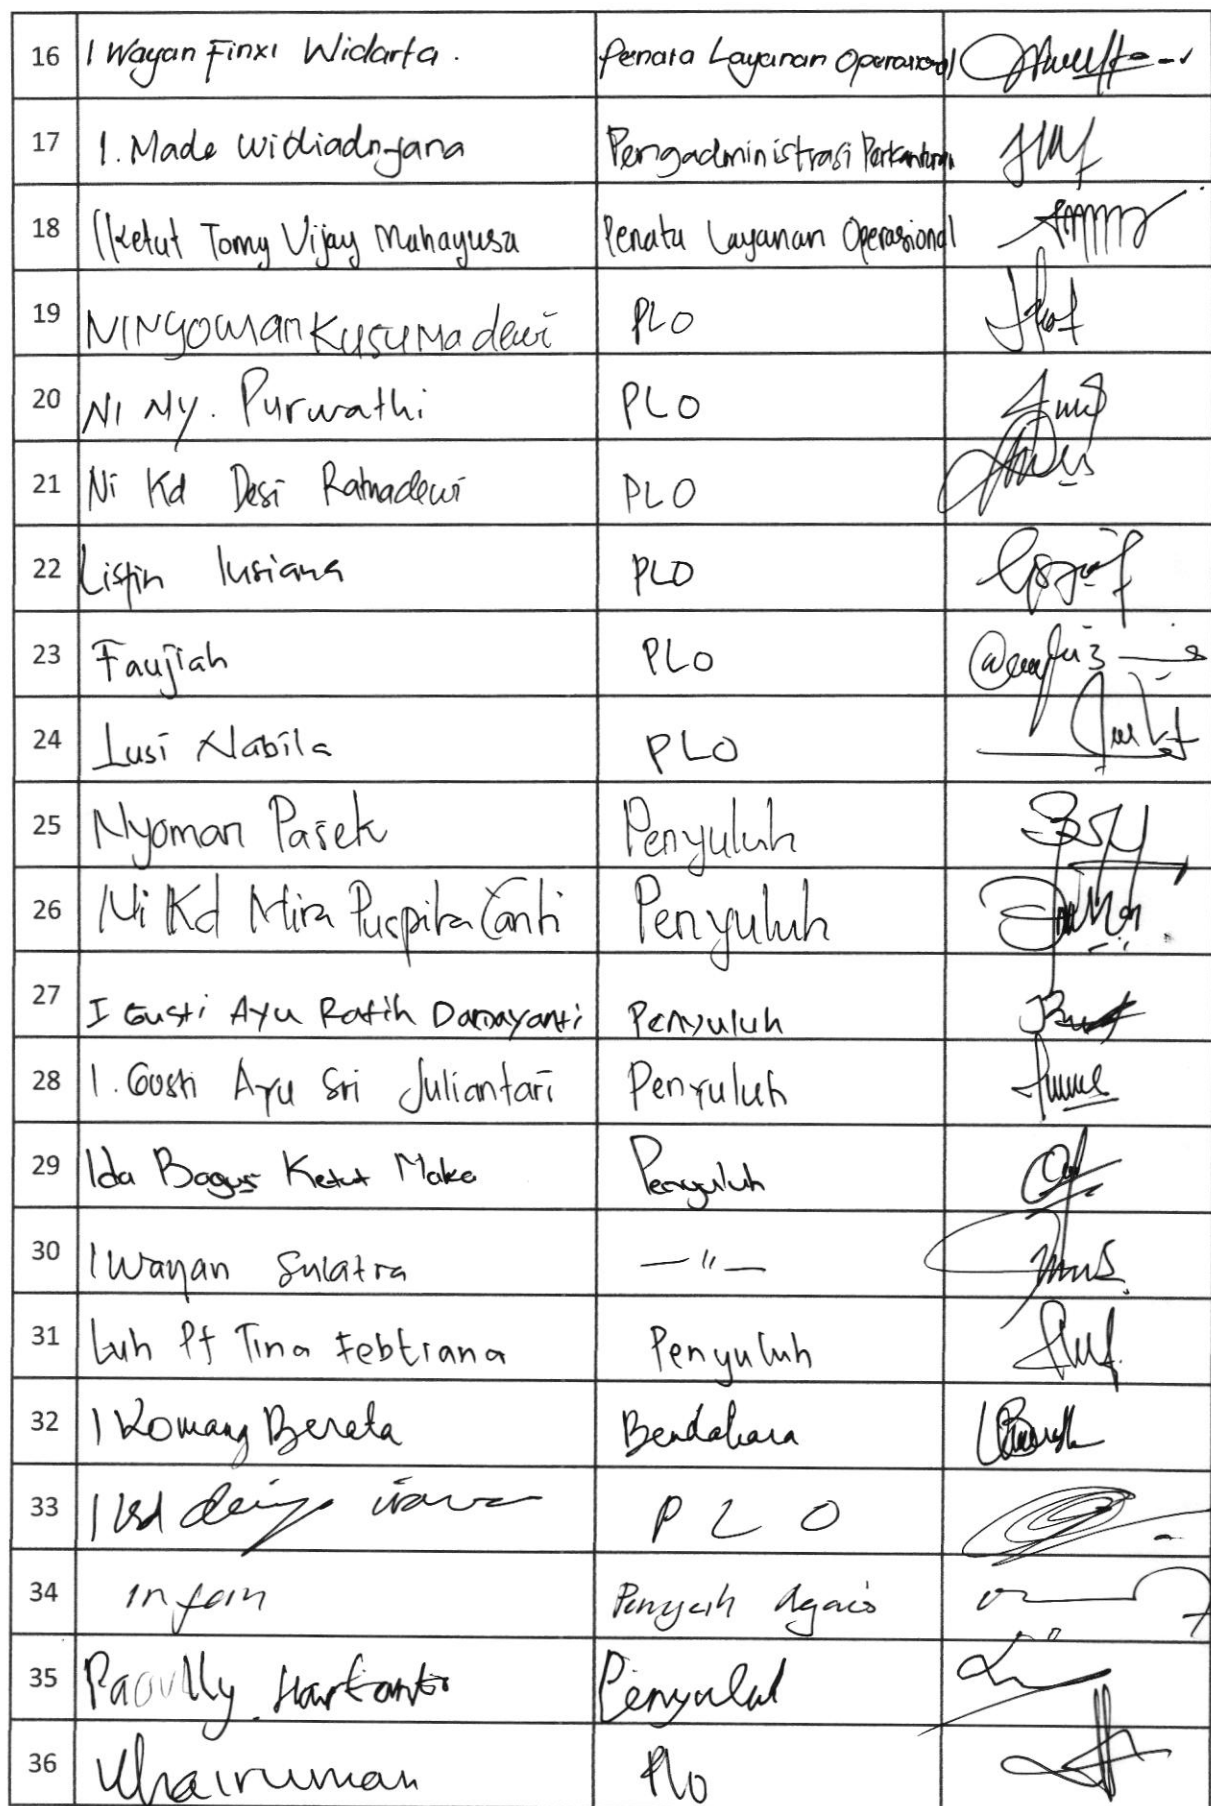 16 I Wayan Finxi Widarta. Penata Layanan Operasional
17 I. Made Widiadnyana Pengadministrasi Perkantoran
18 I Ketut Tomy Vijay Mahayusa Penata Layanan Operasional
19 NI Nyoman Kusuma dewi PLO
20 NI NY. Purwathi PLO
21 Ni Kd Desi Ratnadewi PLO
22 Listin lusiana PLO
23 Faujiah PLO
24 Lusi Nabila PLO
25 Nyoman Pasek Penyuluh
26 Ni Kd Mira Puspita Yanti Penyuluh
27 I Gusti Ayu Ratih Damayanti Penyuluh
28 I. Gusti Ayu Sri Juliantari Penyuluh
29 Ida Bagus Ketut Maka Penyuluh
30 I Wayan Sulatra — " —
31 Luh Pt Tina Febtiana Penyuluh
32 I Komang Berata Bendahara
33 PLO
34
35 Penyuluh
36 Khairuman PLO